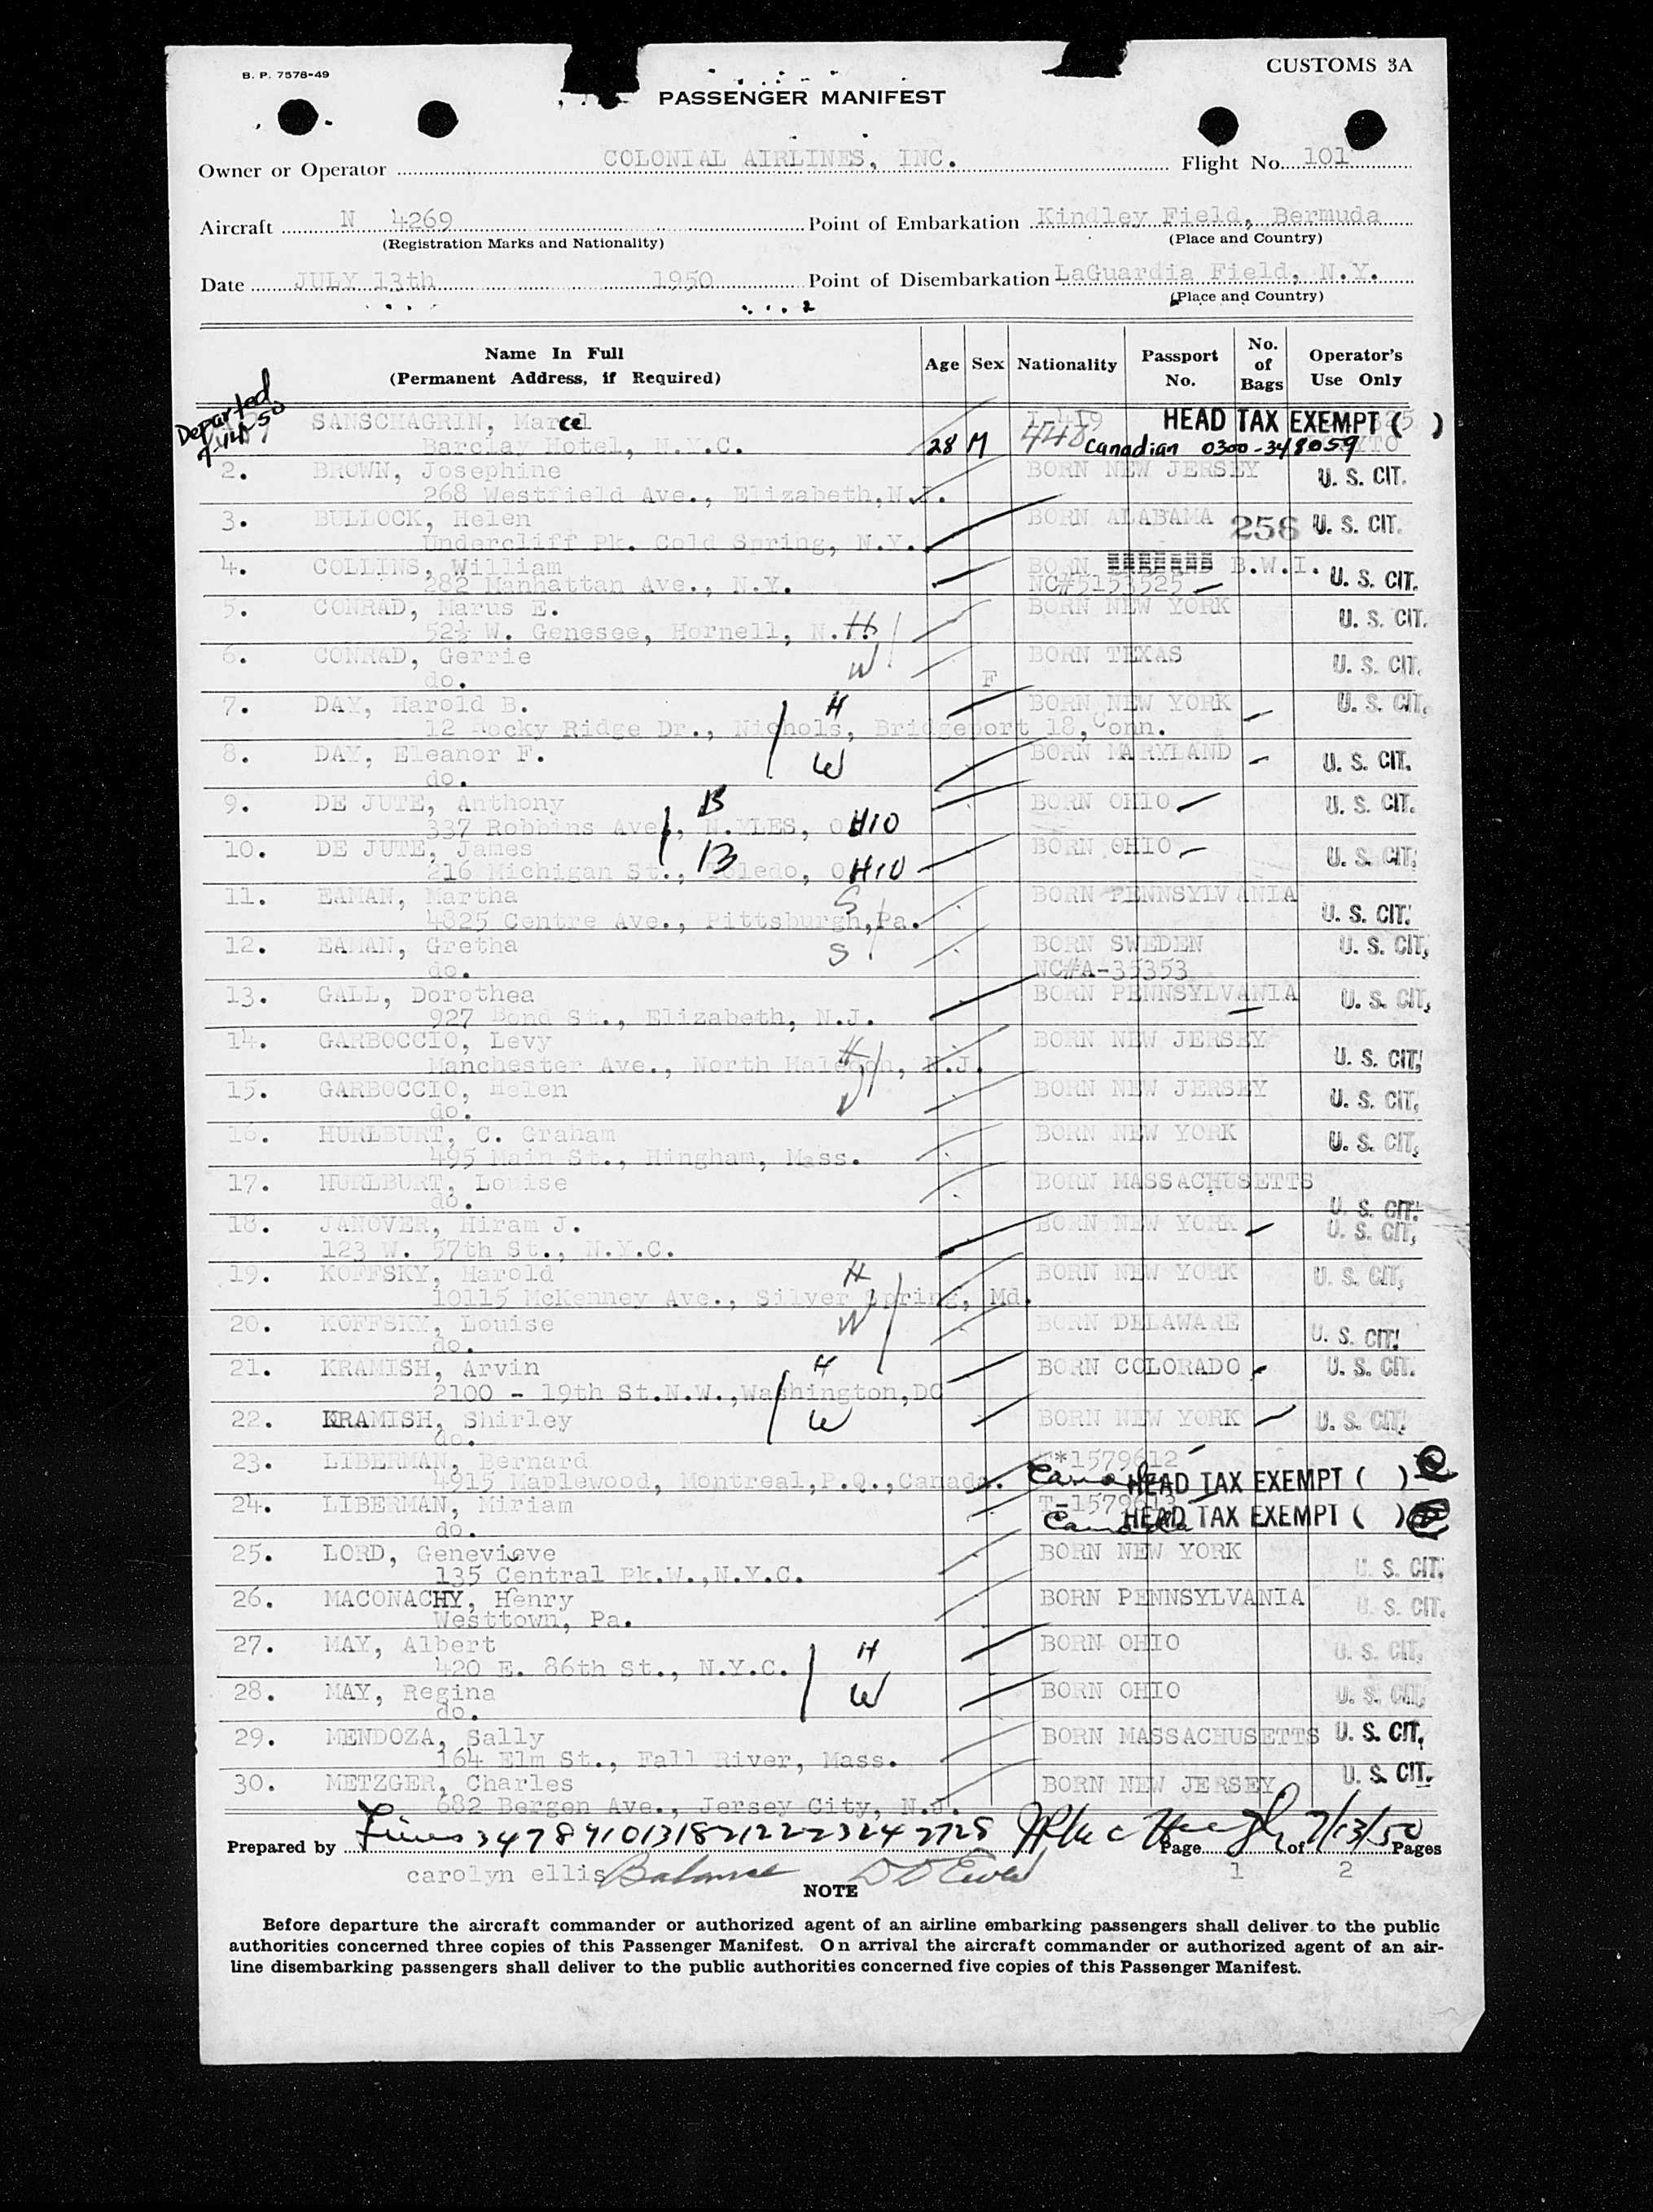 B. P. 7578-49
CUSTOMS 3A
PASSENGER MANIFEST
Owner or Operator COLONIAL AIRLINES, INC. Flight No. 101
Aircraft N 4269 Point of Embarkation Kindley Field, Bermuda
(Registration Marks and Nationality) (Place and Country)
Date JULY 13th 1950 Point of Disembarkation LaGuardia Field, N.Y.
(Place and Country)
Name In Full (Permanent Address, if Required) Age Sex Nationality Passport No. No. of Bags Operator's Use Only
Departed
SANSCHAGRIN, Marcel HEAD TAX EXEMPT ( )
Barclay Hotel, N.Y.C. 28 M 448 Canadian 0300-348059
2. BROWN, Josephine BORN NEW JERSEY U. S. CIT.
268 Westfield Ave., Elizabeth,N.J.
3. BULLOCK, Helen BORN ALABAMA 256 U. S. CIT.
Undercliff Pk. Cold Spring, N.Y.
4. COLLINS, William BORN B.W.I.
282 Manhattan Ave., N.Y. NC#5153525 U. S. CIT.
5. CONRAD, Marus E. BORN NEW YORK U. S. CIT.
52½ W. Genesee, Hornell, N.Y. H
6. CONRAD, Gerrie W BORN TEXAS U. S. CIT.
do. F
7. DAY, Harold B. H BORN NEW YORK U. S. CIT.
12 Rocky Ridge Dr., Nichols, Bridgeport 18, Conn.
8. DAY, Eleanor F. W BORN MARYLAND U. S. CIT.
do.
9. DE JUTE, Anthony B BORN OHIO U. S. CIT.
337 Robbins Ave., N.YLES, OHIO
10. DE JUTE, James B BORN OHIO U. S. CIT.
216 Michigan St., Toledo, OHIO
11. EAMAN, Martha S BORN PENNSYLVANIA
4825 Centre Ave., Pittsburgh,Pa. U. S. CIT.
12. EAMAN, Gretha S BORN SWEDEN U. S. CIT.
do. NC#A-35353
13. GALL, Dorothea BORN PENNSYLVANIA U. S. CIT.
927 Bond St., Elizabeth, N.J.
14. GARBOCCIO, Levy H BORN NEW JERSEY
Manchester Ave., North Haledon, N.J. U. S. CIT.
15. GARBOCCIO, Helen W BORN NEW JERSEY U. S. CIT.
do.
16. HURLBURT, C. Graham BORN NEW YORK U. S. CIT.
495 Main St., Hingham, Mass.
17. HURLBURT, Louise BORN MASSACHUSETTS
do. U. S. CIT.
18. JANOVER, Hiram J. BORN NEW YORK U. S. CIT.
123 W. 57th St., N.Y.C.
19. KOFFSKY, Harold H BORN NEW YORK U. S. CIT.
10115 McKenney Ave., Silver Spring, Md.
20. KOFFSKY, Louise W BORN DELAWARE U. S. CIT.
do.
21. KRAMISH, Arvin H BORN COLORADO U. S. CIT.
2100 - 19th St.N.W.,Washington,DC
22. KRAMISH, Shirley W BORN NEW YORK U. S. CIT.
do.
23. LIBERMAN, Bernard *1579612
4915 Maplewood, Montreal,P.Q.,Canada. Canada HEAD TAX EXEMPT ( )
24. LIBERMAN, Miriam T-1579613
do. Canada HEAD TAX EXEMPT ( )
25. LORD, Genevieve BORN NEW YORK U. S. CIT.
135 Central Pk.W.,N.Y.C.
26. MACONACHY, Henry BORN PENNSYLVANIA U. S. CIT.
Westtown, Pa.
27. MAY, Albert H BORN OHIO U. S. CIT.
420 E. 86th St., N.Y.C.
28. MAY, Regina W BORN OHIO U. S. CIT.
do.
29. MENDOZA, Sally BORN MASSACHUSETTS U. S. CIT.
164 Elm St., Fall River, Mass.
30. METZGER, Charles BORN NEW JERSEY U. S. CIT.
682 Bergen Ave., Jersey City, N.J.
Prepared by Lines 3 4 7 8 9 10 13 18 21 22 23 24 27 28 7/13/50 Page 1 of 2 Pages
carolyn ellis Balance
NOTE
Before departure the aircraft commander or authorized agent of an airline embarking passengers shall deliver to the public
authorities concerned three copies of this Passenger Manifest. On arrival the aircraft commander or authorized agent of an air-
line disembarking passengers shall deliver to the public authorities concerned five copies of this Passenger Manifest.